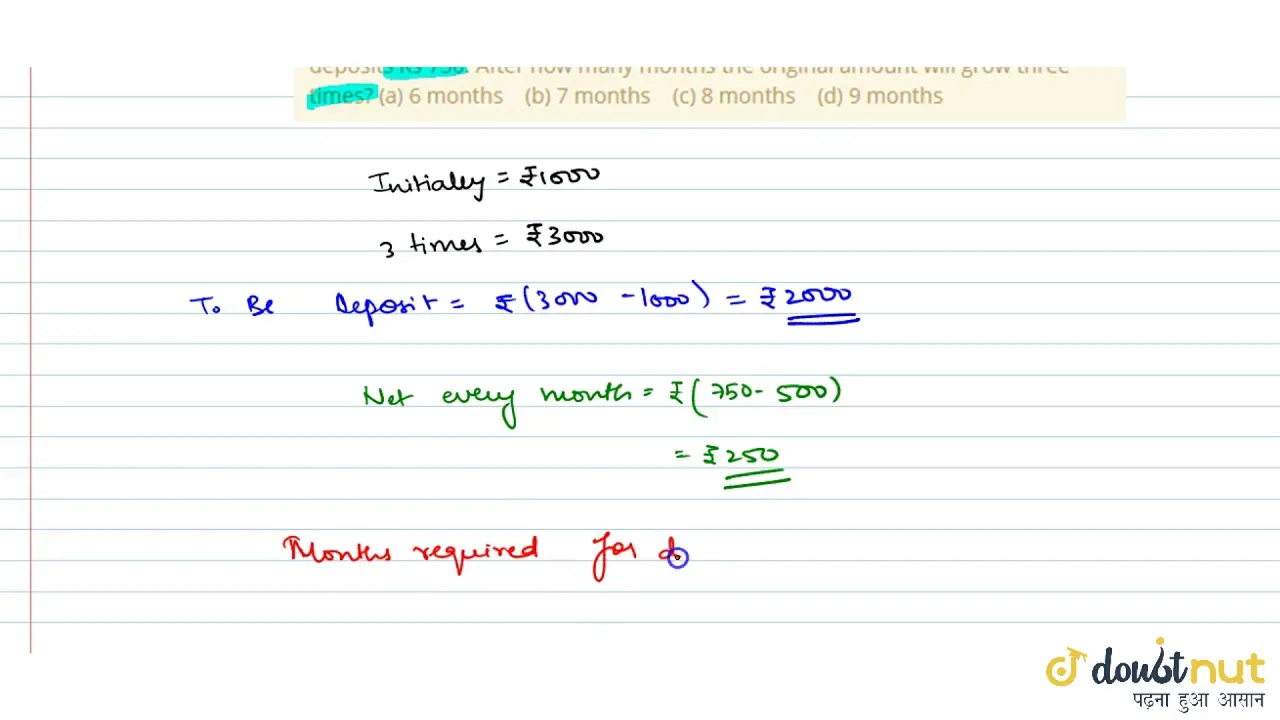 deposits Rs 750. After how many months the original amount will grow three
times? (a) 6 months (b) 7 months (c) 8 months (d) 9 months
Initialey = ₹1000
3 times = ₹3000
To Be Deposit = ₹(3000 - 1000) = ₹2000
Net every month = ₹(750 - 500)
= ₹250
Months required for d
doubtnut
पढ़ना हुआ आसान